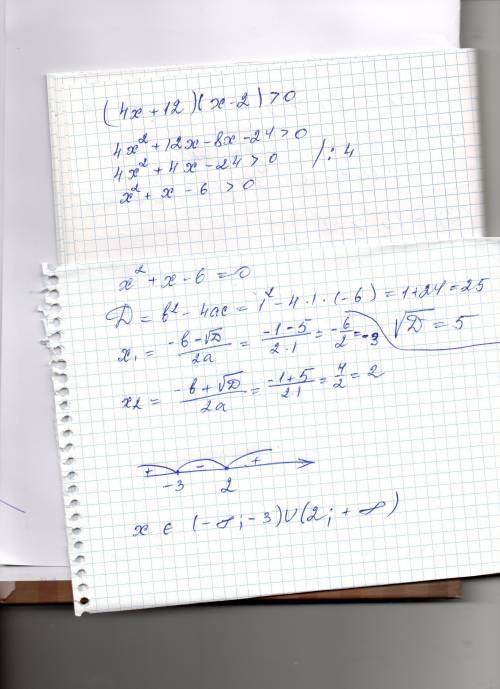 (4x+12)(x-2)>0
4x²+12x-8x-24>0
4x²+4x-24>0 /:4
x²+x-6>0
x²+x-6=0
D=b²-4ac=1²-4·1·(-6)=1+24=25
x₁=(-b-√D)/2a=(-1-5)/2·1=-6/2=-3 √D=5
x2=(-b+√D)/2a=(-1+5)/2·1=4/2=2
+ - +
-3 2
x ∈ (-∞;-3)∪(2;+∞)